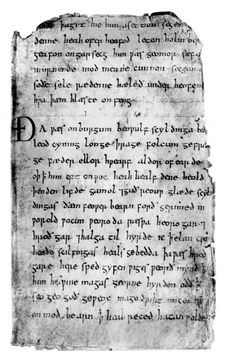 þa gyt hie him asetton segen g
denne heah ofer heafod leton holm be
geafon on garsecg him wæs geomor sefa
murnende mod men ne cunnon secgan
soðe sele rædenne hæleð under heofen
hwa þæm hlæste onfeng.
Ða wæs on burgum beowulf scyldinga
leod cyning longe þrage folcum gefræ
ge fæder ellor hwearf aldor of earde
oþ þ him eft onwoc heah healfdene heold
þenden lifde gamol ⁊ guðreouw glæde scyl
dingas ðæm feower bearn forð gerimed in
worold wocun weoroda ræswa heoro gar ⁊
hroðgar ⁊ halga til hyrde ic þ elan cwen
heaðo scilfingas heals gebedda þa wæs hroð
gare here sped gyfen wiges weorð mynd
him his wine magas georne hyrdon oðð
seo geogoð geweox mago driht micel
on mod be arn þ heal reced hatan wolde